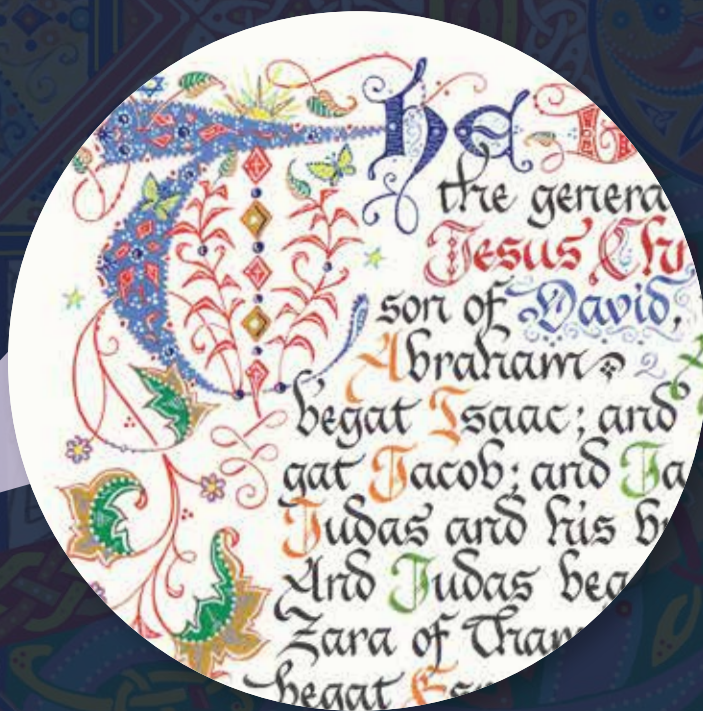 The
the genera
Jesus Chr
son of David,
Abraham. 2 A
begat Isaac; and
gat Jacob; and Ja
Judas and his br
And Judas beg
Zara of Tham
begat Es